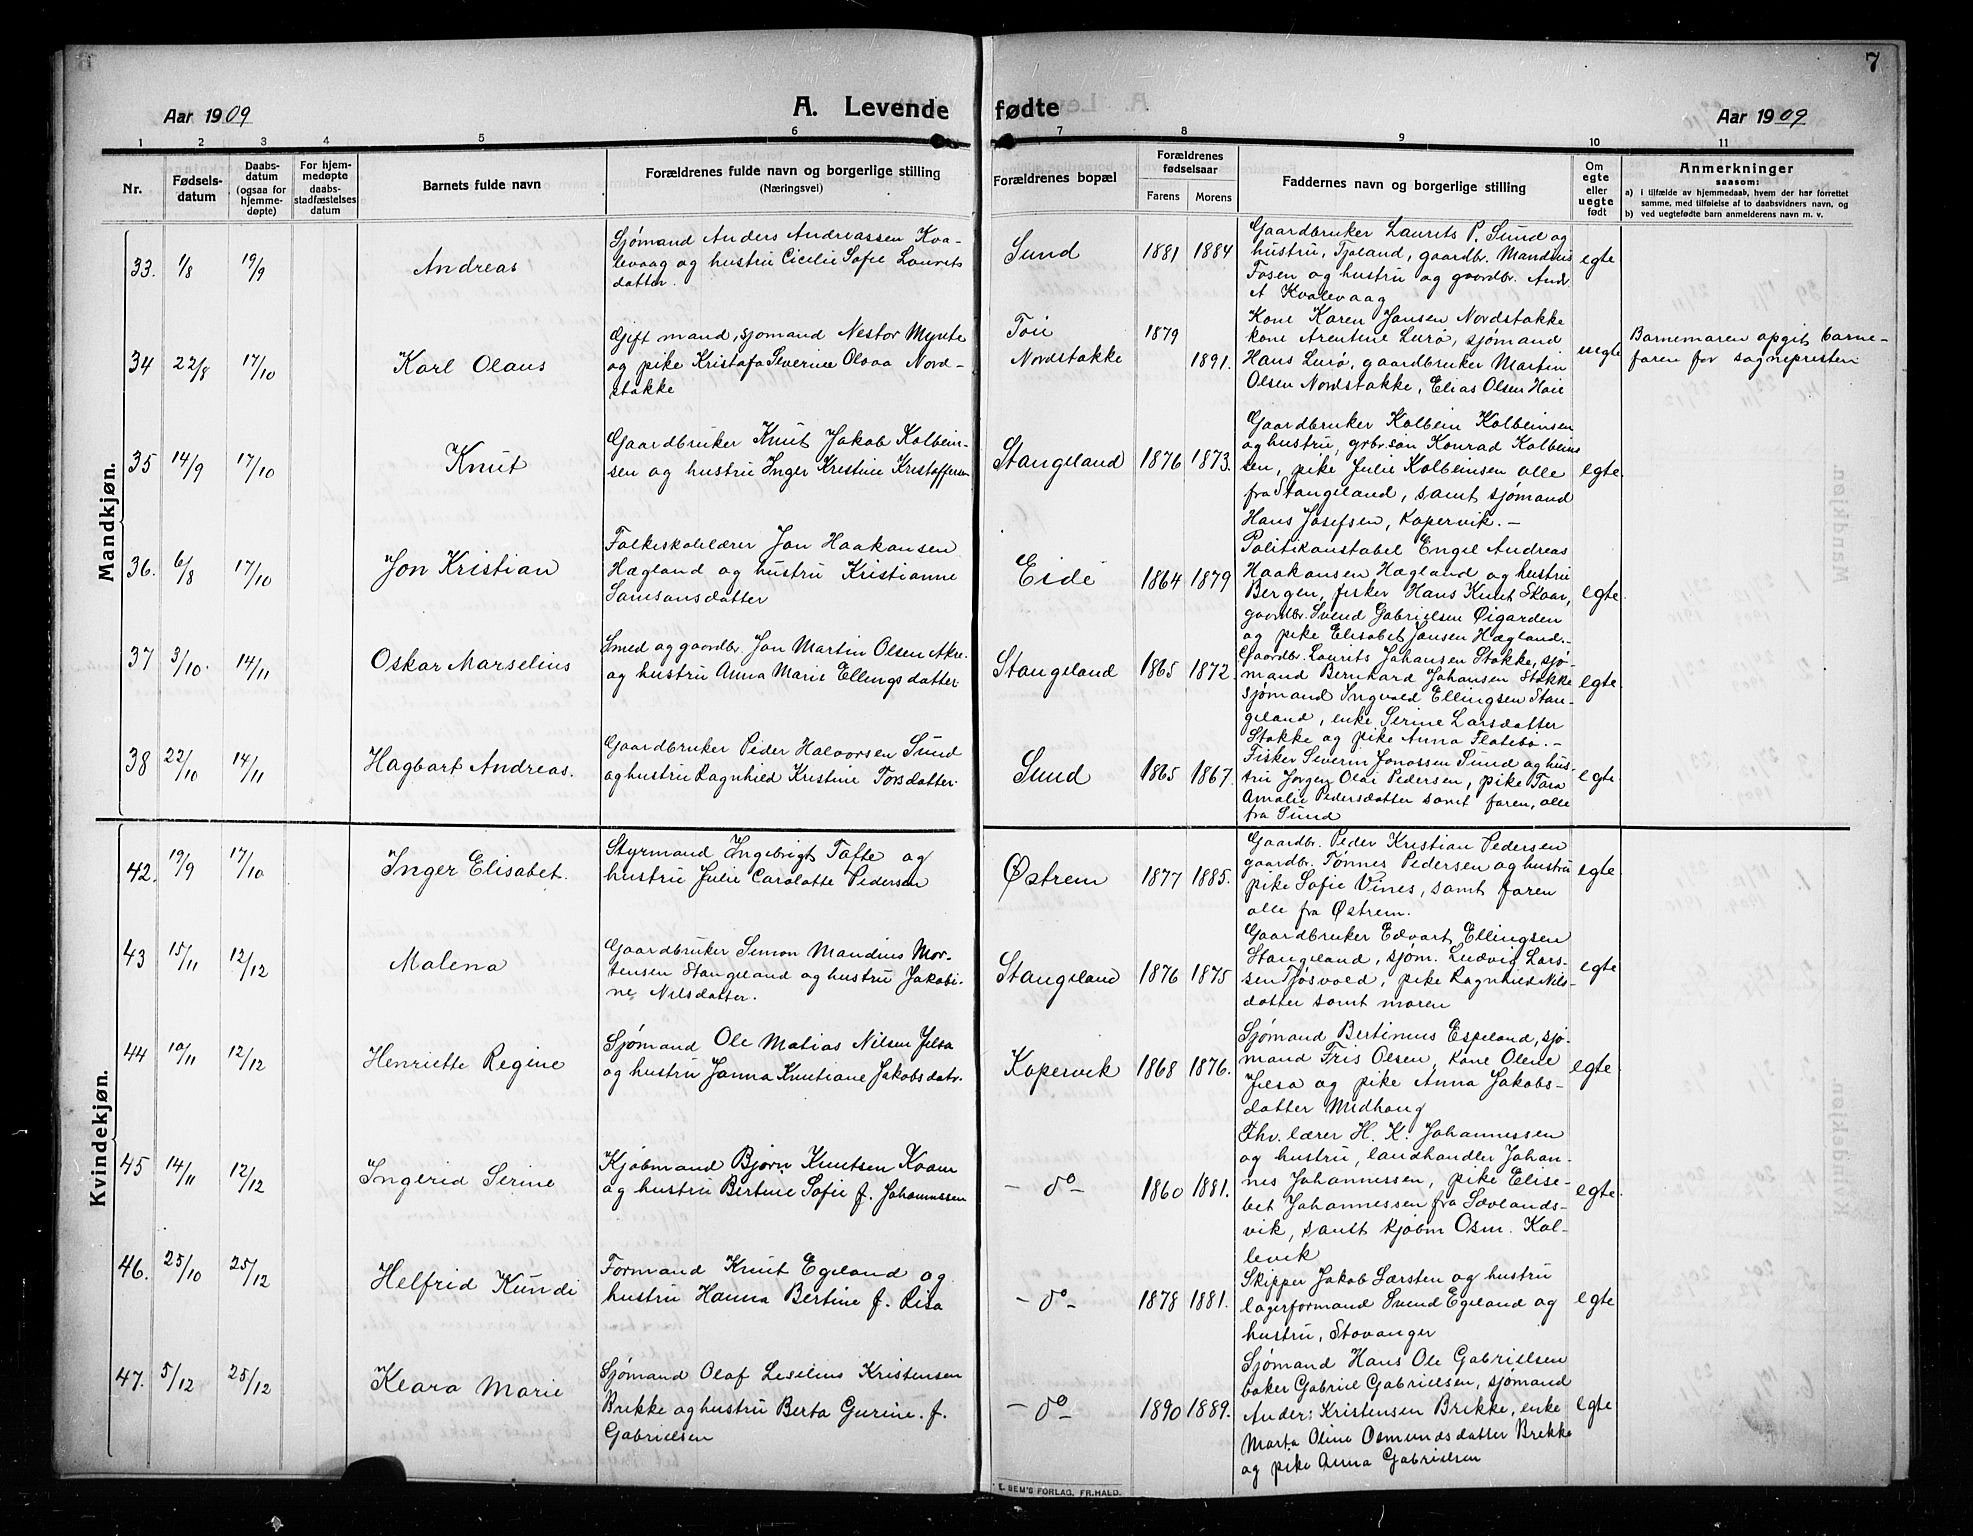 7
Aar 1909
A. Levende fødte
Aar 1909
1 2 3 4 5 6 7 8 9 10 11
Nr.
Fødsels-
datum
Daabs-
datum
(ogsaa for
hjemme-
døpte)
For hjem-
medøpte
daabs-
stadfæstelses
datum
Barnets fulde navn
Forældrenes fulde navn og borgerlige stilling
(Næringsvei)
Forældrenes bopæl
Forældrenes
fødselsaar
Farens Morens
Faddernes navn og borgerlige stilling
Om
egte
eller
uegte
født
Anmerkninger
saasom:
a) i tilfælde av hjemmedaab, hvem der har forrettet
samme, med tilføielse af to daabsvidners navn, og
b) ved uegtefødte barn anmelderens navn m. v.
Mandkjøn.
33. 1/8 19/9
Andreas
Sjømand Anders Andreassen Kva-
levaag og hustru Cicilie Sofie Laurits
datter.
Sund
1881 1884
Gaardbruker Laurits P. Sund og
hustru, Tjøland, gaardbr. Mandius
Fosen og hustru og gaardbr. Andr.
A Kvalevaag
egte
34 22/8 17/10
Karl Olaus
Gift mand, sjømand Nestor Mynte
og pike Kristofa Severine Olvaa Nord-
stokke
Nordstokke
1879
1891.
Kone Karen Jansen Nordstokke
kone Arentine Lurø, sjømand
Hans Lurø, gaardbruker Martin
Olsen Nordstokke, Elias Olsen Høie
uegte
Barnemoren opgit barne-
faren for sognepresten
35 14/9 17/10
Knut
Gaardbruker Knut Jakob Kolbein-
sen og hustru Inger Kristine Kristoffersen
Stangeland
1876 1873.
Gaardbruker Kolbein Kolbeinsen
og hustru, grbr. søn Konrad Kolbeins
sen, pike Julie Kolbeinsen alle
fra Stangeland, samt sjømand
Hans Josefsen, Kopervik. –
egte.
36. 6/8 17/10
Jon Kristian
Folkeskolelærer Jon Haakonsen
Hægland og hustru Kristianne
Samsonsdatter
Eide
1864 1879
Politikonstabel Engel Andreas
Haakonsen Hægland og hustru
Bergen, fisker Hans Knut Skaar,
gaardbr. Svend Gabrielsen Øigarden
og pike Elisabet Jansen Hægland.-
egte.
37 3/10. 14/11
Oskar Marselius
Smed og gaardbr. Jon Martin Olsen Akre.
og hustru Anna Marie Ellingsdatter
Stangeland
1865 1872.
Gaardbr. Laurits Johansen Stokke, sjø-
mand Bernhard Johansen Stokke
sjømand Ingvald Ellingsen Stan-
geland, enke Serine Larsdatter
Stokke og pike Anna Flatebø. –
egte.
38 22/10 14/11
Hagbart Andreas.
Gaardbruker Peder Halvorsen Sund
og hustru Ragnhild Kristine Torsdatter
Sund
1865 1867.
Fisker Severin Jonassen Sund og hus-
tru Jørgen Olai Pedersen, pike Tora
Amalie Pedersdatter samt faren, alle
fra Sund
egte
Kvindekjøn.
42. 19/9 17/10
Inger Elisabet.
Styrmand Ingebrigt Tofte og
hustru Julie Carolotte Pedersen
Østrem
1877 1885.
Gaardbr. Peder Kristian Pedersen
gaardbr. Tønnes Pedersen og hustru
pike Sofie Vines, samt faren
alle fra Østrem.
egte.
43 15/11 12/12
Malena
Gaardbruker Simon Mandius Mor-
tensen Stangeland og hustru Jakobi-
ne Nilsdatter.
Stangeland
1876 1875
Gaardbruker Edvart Ellingsen
Stangeland, sjøm. Ludvig Lars-
sen Tjøsvold, pike Ragnhild Nils-
datter samt moren
egte
44 10/11 12/12
Henriette Regine
Sjømand Ole Matias Nilsen Jelsa
og hustru Janna Knutiane Jakobsdatr.
Kopervik
1868 1876.
Sjømand Bertinius Espeland, sjø-
mand Fris Olsen, kone Olene
Jelsa og pike Anna Jakobs-
datter Midhaug
egte
45 14/11 12/12
Ingerid Serine
Kjøbmand Bjørn Knutsen Kvam
og hustru Bertine Sofie f. Johannessen
– do –
1860 1881.
Fhv. lærer H. K. Johannessen
og hustru, landhandler Johan-
nes Johannessen, pike Elise-
bet Johannessen fra Sævlands-
vik, samt kjøbm Osm. Kol-
levik
egte.
46. 25/10 25/12
Helfrid Kundi
Formand Knut Egeland og
hustru Hanna Bertine f. Lisa
– do –
1878 1881.
Skipper Jakob Larsten og hustru
lagerformand Svend Egeland og
hustru, Stavanger
egte
47. 5/12 25/12
Klara Marie
Sjømand Olaf Leselius Kristensen
Brekke og hustru Berta Gurine. f.
Gabrielsen
– do –
1890 1889.
Sjømand Hans Ole Gabrielsen
baker Gabriel Gabrielsen, sjømand
Anders Kristensen Brekke, enke
Marta Oline Osmundsdatter Brekke
og pike Anna Gabrielsen
egte
E. SEM'S FORLAG, FR.HALD.